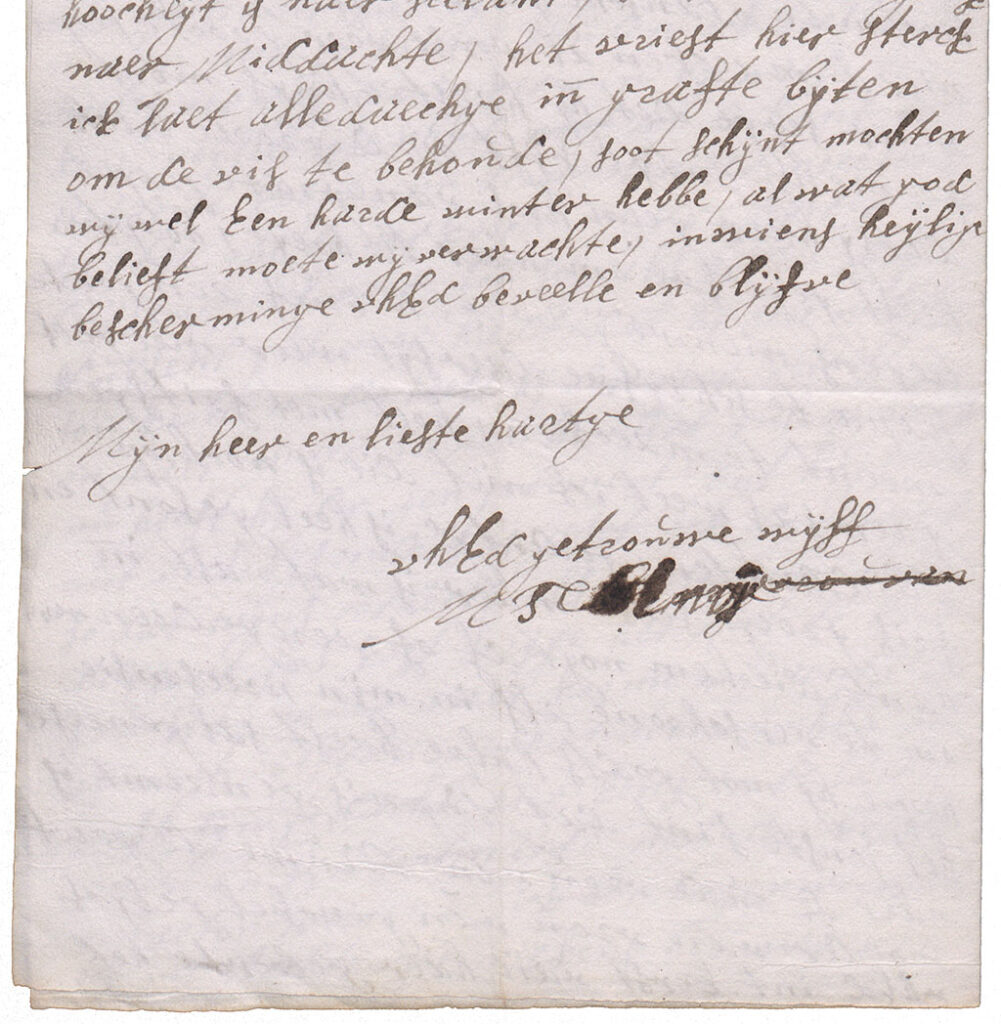 hoocheyt is naer
naer Middachte, het vriest hier sterck
ick laet alledaechge in grafte bijten
om de vis te behoude, soot schijnt mochten
wij wel Een harde winter hebbe, al wat god
belieft moete wij verwachte, in wiens heijlige
bescherminge uhEd beveelle en blijfve
Mijn heer en liefte hartge
uhEd getrouwe wijff
M